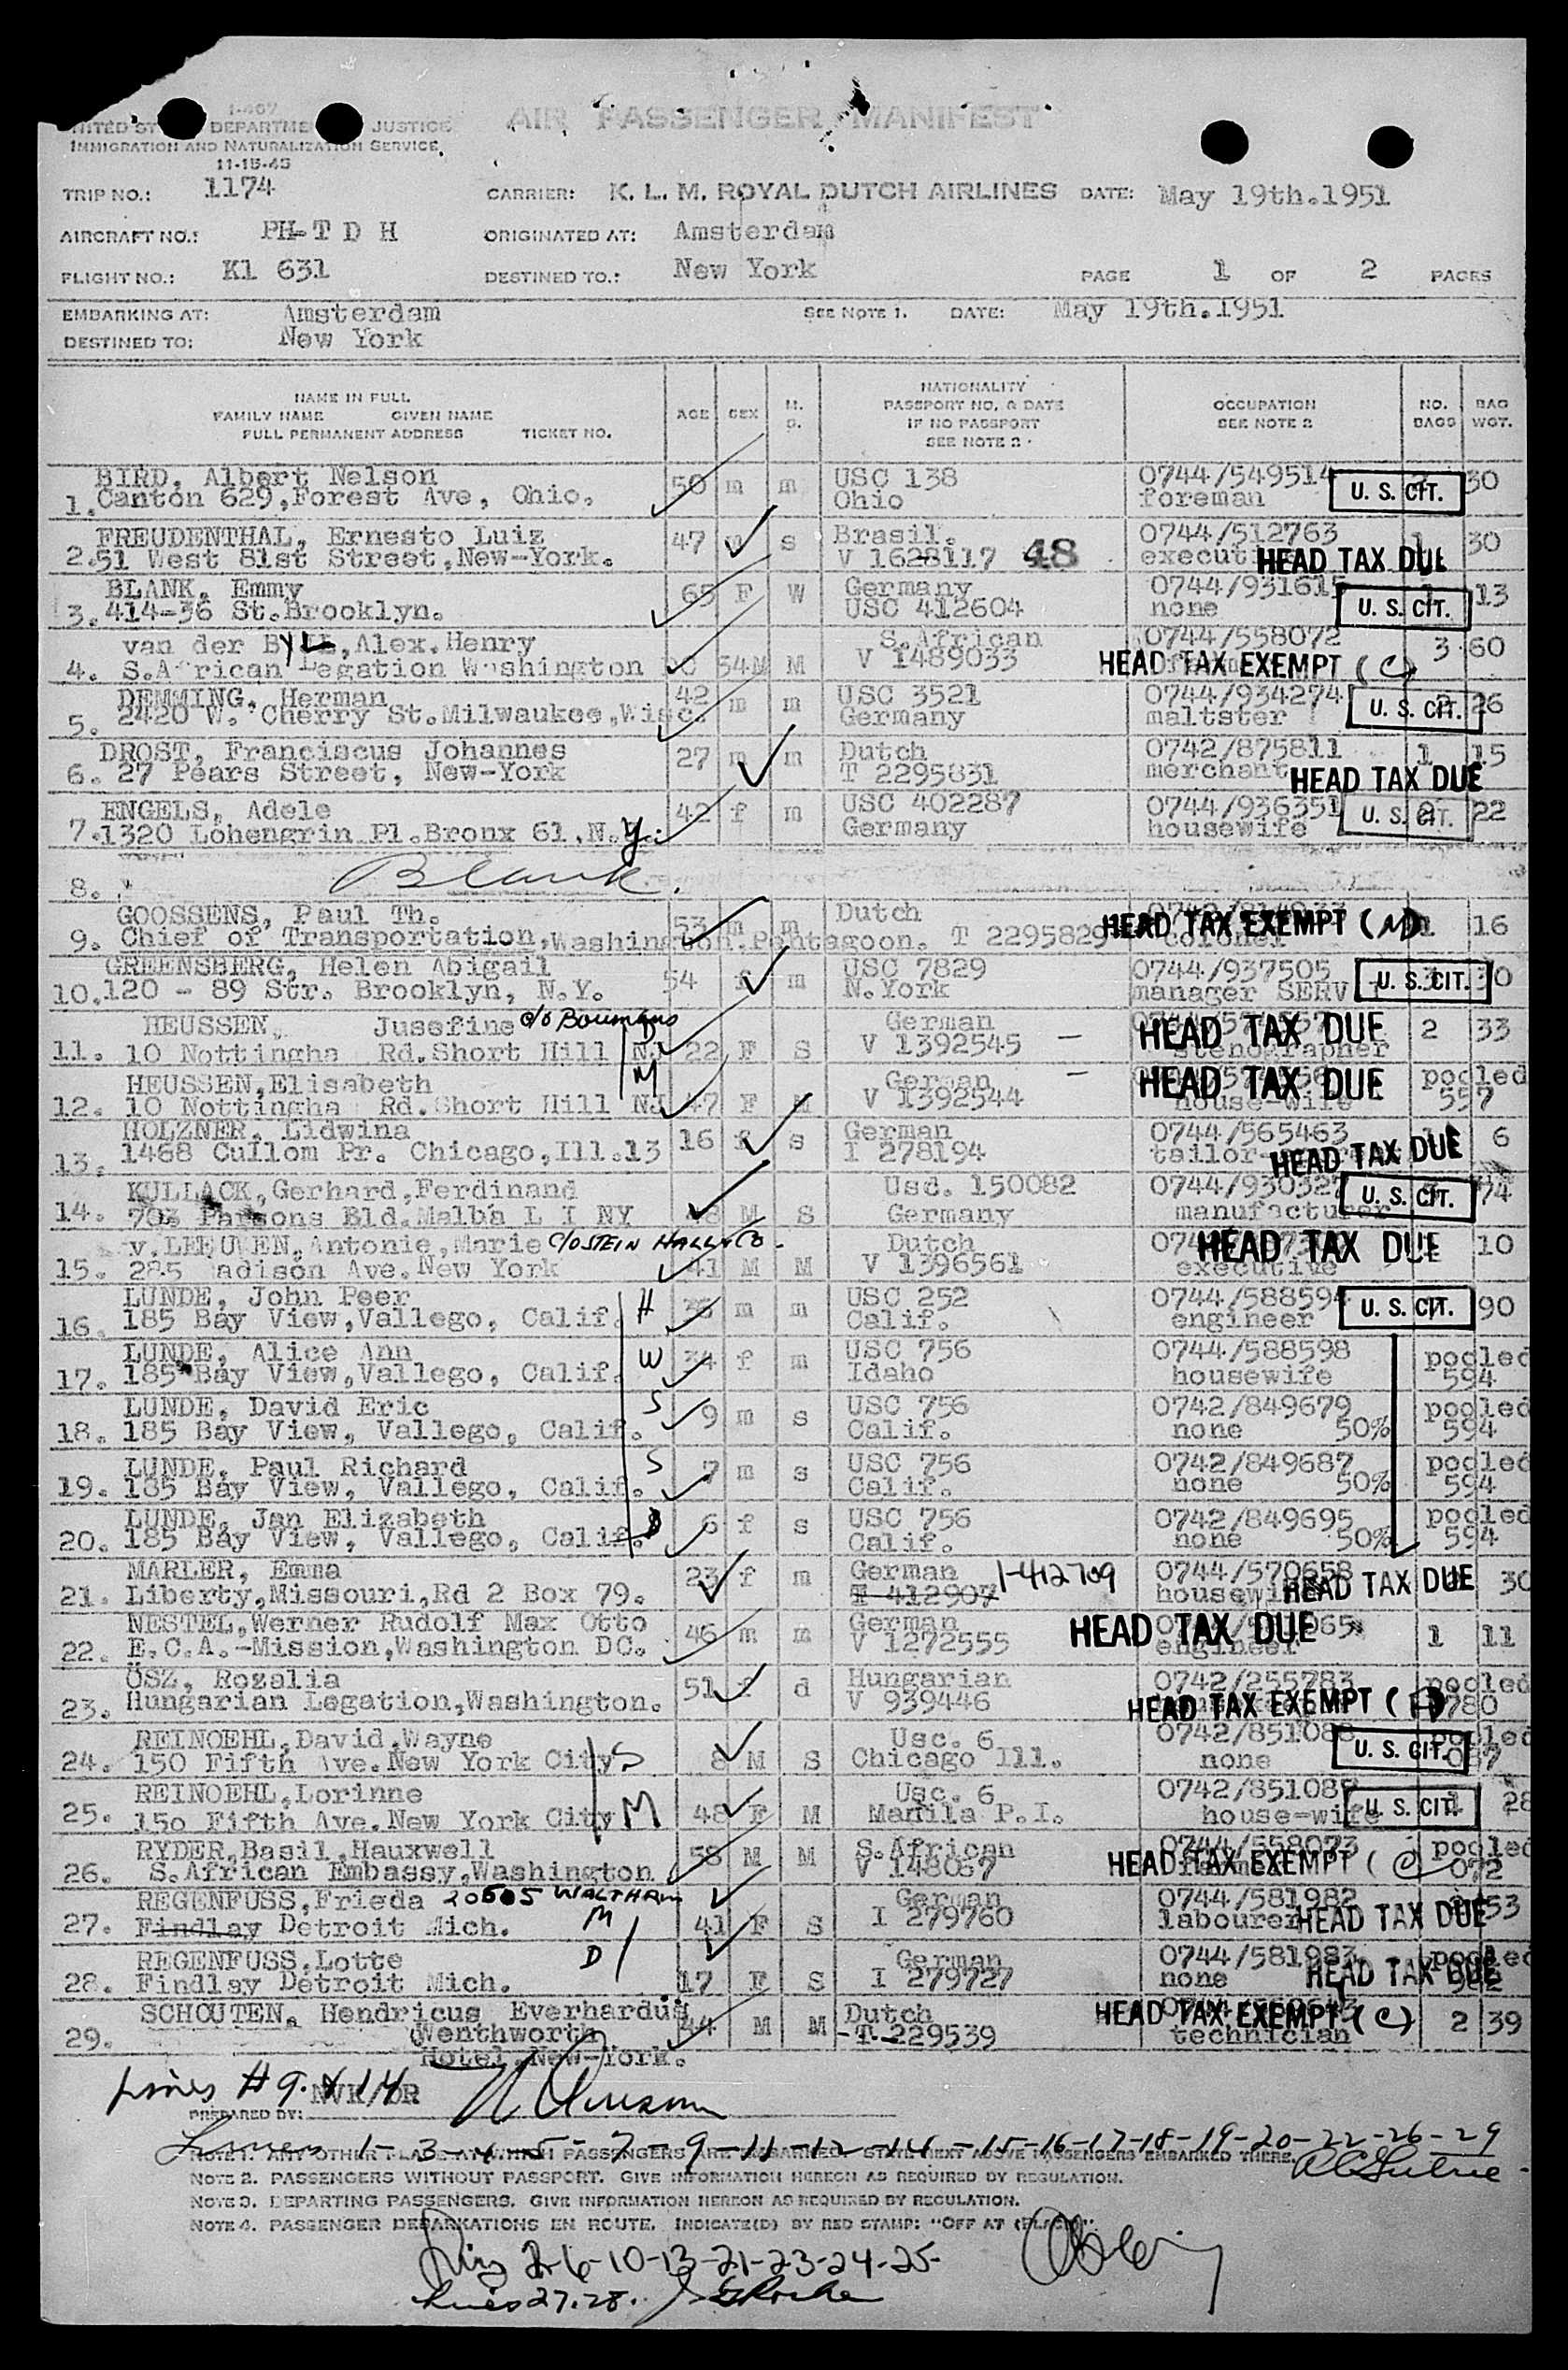 I-407
UNITED ST DEPARTME JUSTICE
IMMIGRATION AND NATURALIZATION SERVICE
11-15-45
AIR PASSENGER MANIFEST
TRIP NO.: 1174 CARRIER: K. L. M. ROYAL DUTCH AIRLINES DATE: May 19th.1951
AIRCRAFT NO.: PH-T D H ORIGINATED AT: Amsterdam
FLIGHT NO.: Kl 631 DESTINED TO.: New York PAGE 1 OF 2 PAGES
EMBARKING AT: Amsterdam SEE NOTE 1. DATE: May 19th.1951
DESTINED TO: New York
NAME IN FULL
FAMILY NAME GIVEN NAME
FULL PERMANENT ADDRESS TICKET NO.
AGE SEX M. S.
NATIONALITY
PASSPORT NO. & DATE
IF NO PASSPORT
SEE NOTE 2
OCCUPATION
SEE NOTE 2
NO. BAGS
BAG WGT.
BIRD, Albert Nelson 50 m m USC 138 0744/549514 30
1. Canton 629, Forest Ave, Ohio. Ohio foreman U. S. CIT.
FREUDENTHAL, Ernesto Luiz 47 s Brasil. 0744/512763 1 30
2. 51 West 81st Street, New-York. V 1628117 48 HEAD TAX DUE
BLANK, Emmy 65 F W Germany 0744/931615 13
3. 414-36 St.Brooklyn. USC 412604 none U. S. CIT.
van der ByL, Alex.Henry S.African 0744/558072 3 60
4. S.African Legation Washington 54 M M V 1489033 HEAD TAX EXEMPT (C)
DEMMING, Herman 42 m m USC 3521 0744/934274 26
5. 2420 W. Cherry St.Milwaukee, Wisc. Germany maltster U. S. CIT.
DROST, Franciscus Johannes 27 m m Dutch 0742/875811 1 15
6. 27 Pears Street, New-York T 2295831 merchant HEAD TAX DUE
ENGELS, Adele 42 f m USC 402287 0744/936351 22
7. 1320 Lohengrin Pl.Bronx 61, N.Y. Germany housewife U. S. CIT.
8. Blank.
GOOSSENS, Paul Th. 53 m m Dutch 1 16
9. Chief of Transportation, Washington.Pentagoon. T 2295829 HEAD TAX EXEMPT colonel
GREENSBERG, Helen Abigail 54 f m USC 7829 0744/937505 30
10. 120 - 89 Str. Brooklyn, N.Y. N.York manager SERV U. S. CIT.
HEUSSEN, Jusefine c/o Boumans D German HEAD TAX DUE 2 33
11. 10 Nottingha Rd.Short Hill NJ 22 F S V 1392545 - stenographer
HEUSSEN, Elisabeth M German - HEAD TAX DUE pooled
12. 10 Nottingha Rd.Short Hill NJ 47 F M V 1392544 house-wife 557
HOLZNER, Lidwina 16 f s German 0744/565463 6
13. 1468 Cullom Pr. Chicago, Ill.13 I 278194 HEAD TAX DUE
KULLACK, Gerhard, Ferdinand Usc. 150082 0744/930327 74
14. 703 Parsons Bld.Malba L I NY 48 M S Germany manufacturer U. S. CIT.
v.LEEUWEN, Antonie, Marie C/O STEIN HALL & CO. Dutch HEAD TAX DUE 10
15. 285 Madison Ave.New York 41 M M V 1396561 executive
LUNDE, John Peer H 35 m m USC 252 0744/588594 90
16. 185 Bay View, Vallego, Calif. Calif. engineer U. S. CIT.
LUNDE, Alice Ann W 34 f m USC 756 0744/588598 pooled
17. 185 Bay View, Vallego, Calif. Idaho housewife 594
LUNDE, David Eric S 9 m s USC 756 0742/849679 pooled
18. 185 Bay View, Vallego, Calif. Calif. none 50% 594
LUNDE, Paul Richard S 7 m s USC 756 0742/849687 pooled
19. 185 Bay View, Vallego, Calif. Calif. none 50% 594
LUNDE, Jan Elizabeth D 6 f s USC 756 0742/849695 pooled
20. 185 Bay View, Vallego, Calif. Calif. none 50% 594
MARLER, Emma 23 f m German I-412709 0744/570658 30
21. Liberty, Missouri, Rd 2 Box 79. T 412907 housewife HEAD TAX DUE
NESTEL, Werner Rudolf Max Otto 46 m m German HEAD TAX DUE 1 11
22. E.C.A.-Mission, Washington DC. V 1272555 engineer
ÖSZ, Rozalia 51 f d Hungarian 0742/255783 pooled
23. Hungarian Legation, Washington. V 939446 HEAD TAX EXEMPT 780
REINOEHL, David, Wayne 8 M S Usc. 6 0742/851088 pooled
24. 150 Fifth Ave.New York City S Chicago Ill. none U. S. CIT. 087
REINOEHL, Lorinne 48 F M Usc. 6 0742/851087 28
25. 150 Fifth Ave.New York City M Manila P.I. house-wife U. S. CIT.
RYDER, Basil, Hauxwell 58 M M S.African 0744/558073 pooled
26. S.African Embassy, Washington V 148087 HEAD TAX EXEMPT (C) 072
REGENFUSS, Frieda 20505 WALTHAM German 0744/581982 53
27. Findlay Detroit Mich. M 41 F S I 279760 labourer HEAD TAX DUE
REGENFUSS, Lotte D German 0744/581983 pooled
28. Findlay Detroit Mich. 17 F S I 279727 none HEAD TAX DUE 982
SCHOUTEN, Hendricus Everhardus 44 M M Dutch HEAD TAX EXEMPT (C) 2 39
29. Wenthworth T 229539 technician
Hotel, New-York.
Lines # 9. & 14 NVK/DR
PREPARED BY:
Lines 1-3-4-5-7-9-11-12-14-15-16-17-18-19-20-22-26-29
NOTE 1. ANY OTHER PLACE AT WHICH PASSENGERS ARE EMBARKED. STATE NEXT ABOVE PASSENGERS EMBARKED THERE.
NOTE 2. PASSENGERS WITHOUT PASSPORT. GIVE INFORMATION HEREON AS REQUIRED BY REGULATION.
NOTE 3. DEPARTING PASSENGERS. GIVE INFORMATION HEREON AS REQUIRED BY REGULATION.
NOTE 4. PASSENGER DEBARKATIONS EN ROUTE. INDICATE(D) BY RED STAMP: "OFF AT (PLACE)".
2-6-10-13-21-23-24-25-
Lines 27.28.